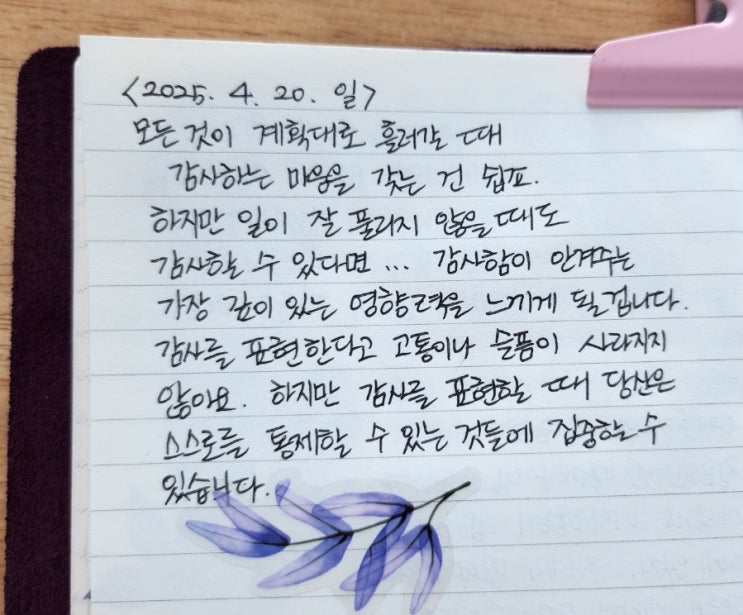 <2025. 4. 20. 일>
모든 것이 계획대로 흘러갈 때
감사하는 마음을 갖는 건 쉽죠.
하지만 일이 잘 풀리지 않을 때도
감사할 수 있다면 ... 감사함이 안겨주는
가장 깊이 있는 영향력을 느끼게 될겁니다.
감사를 표현한다고 고통이나 슬픔이 사라지지
않아요. 하지만 감사를 표현할 때 당신은
스스로를 통제할 수 있는 것들에 집중할 수
있습니다.